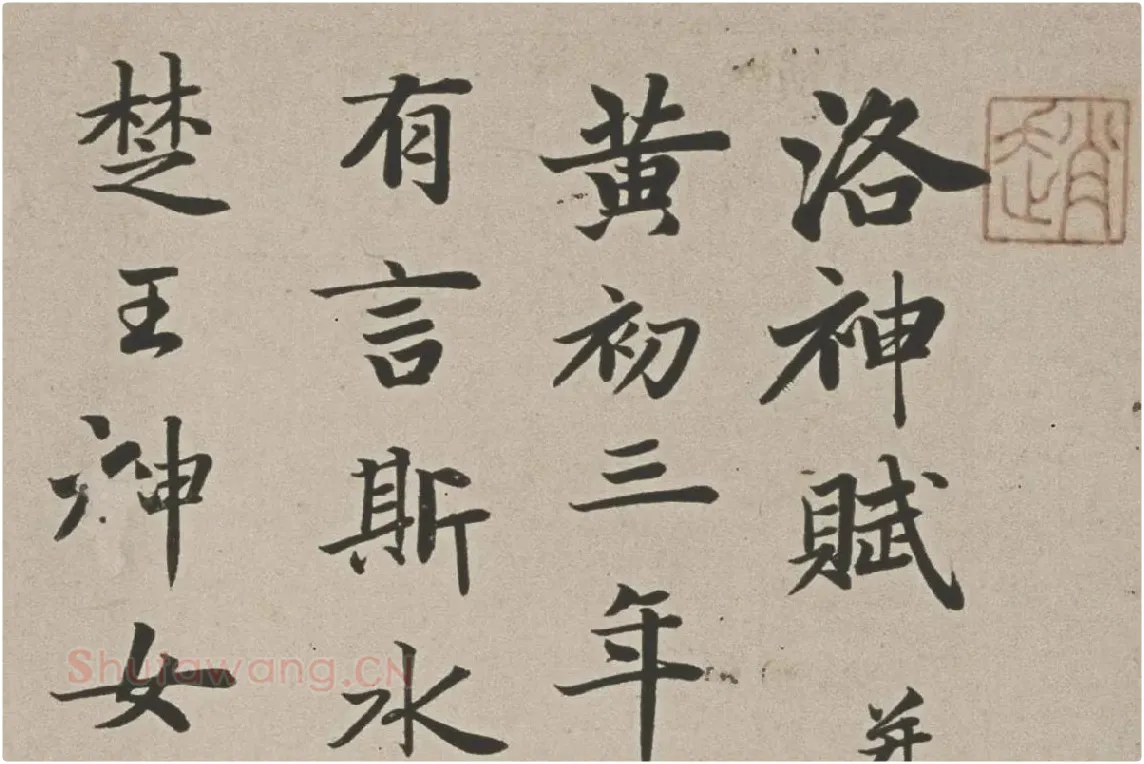 趙
洛神賦 并
黄初三年
有言斯水
楚王神女
Shufawang.CN